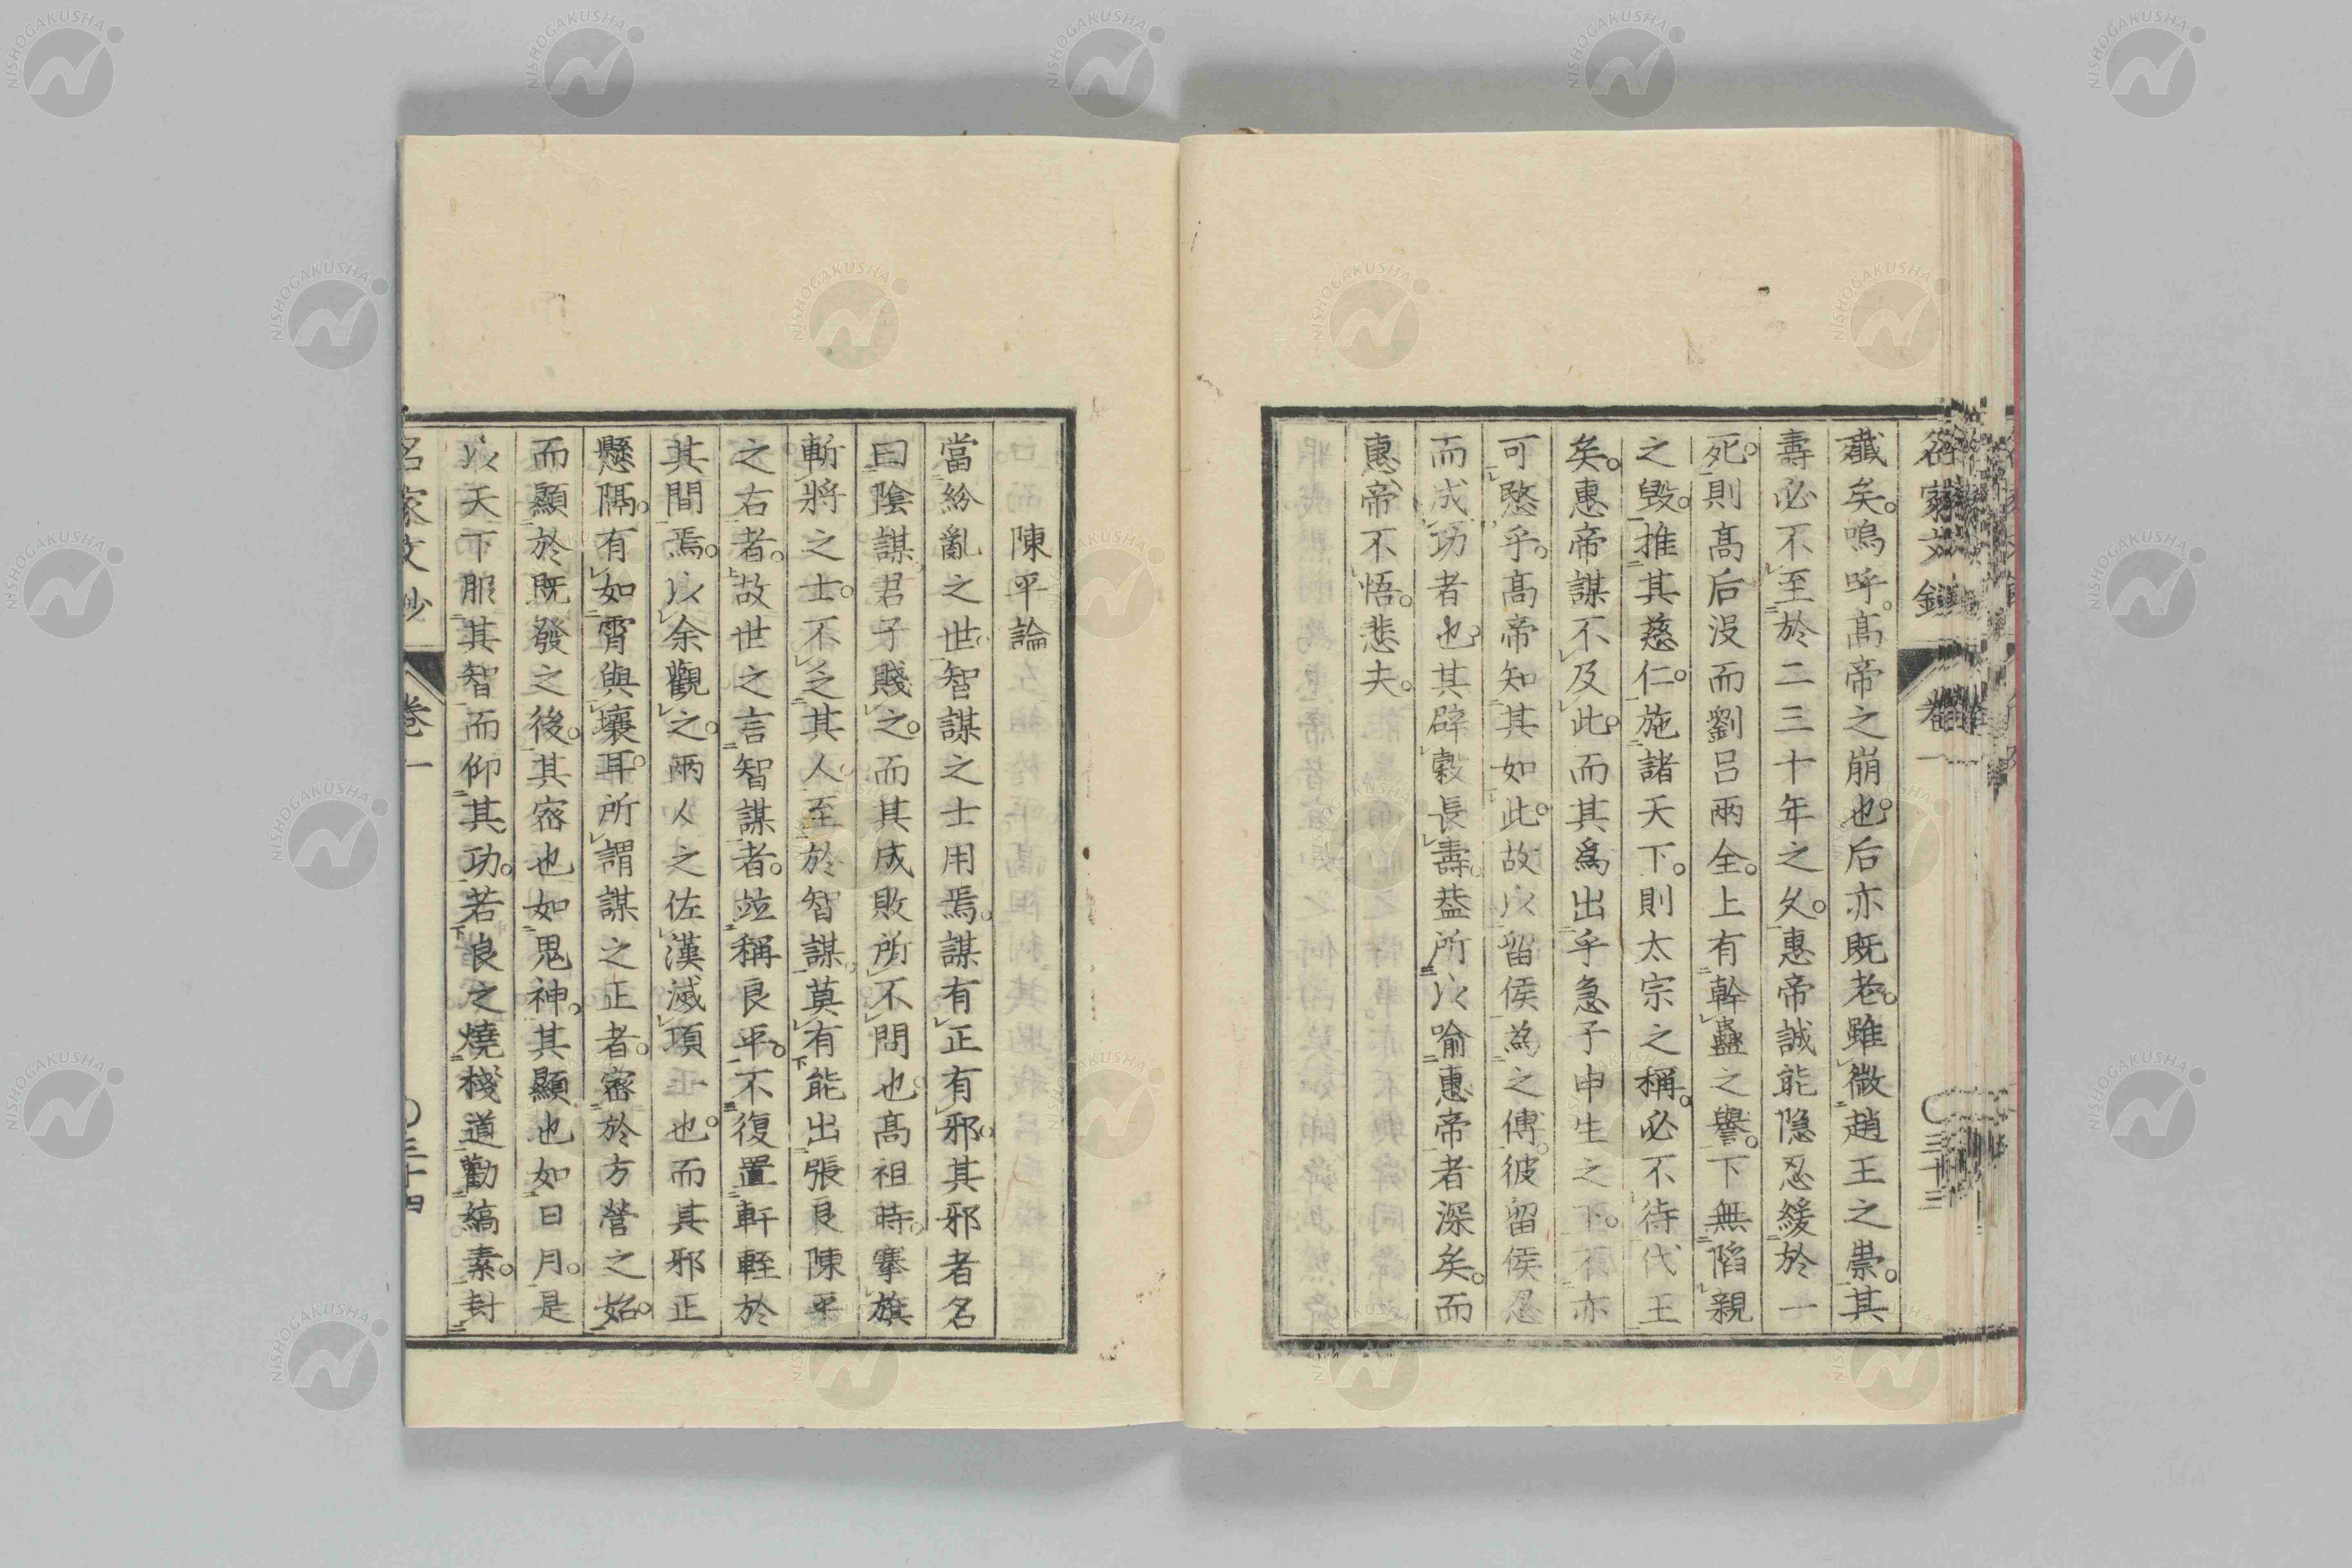 名家文鈔 卷一 〇三十三
虀矣。嗚呼。髙帝之崩也。后亦既老。雖微趙王之祟。其
壽必不至於二三十年之久。惠帝誠能隱忍緩於一
死。則髙后沒而劉呂兩全。上有幹蠱之譽。下無陷親
之毀。推其慈仁。施諸天下。則太宗之稱。必不待代王
矣。惠帝謀不及此。而其爲出乎急子申生之下。亦
可愍乎。髙帝知其如此。故以留侯爲之傅。彼留侯忍
而成功者也。其辟穀長壽。葢所以喻惠帝者深矣。而
惠帝不悟。悲夫。
陳平論
當紛亂之世。智謀之士用焉。謀有正有邪。其邪者名
曰陰謀。君子賤之。而其成敗所不問也。髙祖時。搴旗
斬將之士。不乏其人。至於智謀。莫有能出張良陳平
之右者。故世之言智謀者。竝稱良平。不復置軒輊於
其間焉。以余觀之。兩人之佐漢滅項一也。而其邪正
懸隔。有如霄與壤耳。所謂謀之正者。密於方營之始。
而顯於既發之後。其密也如鬼神。其顯也如日月。是
以天下服其智而仰其功。若良之燒棧道勸縞素。封
名家文鈔 卷一 〇三十四
NISHOGAKUSHA